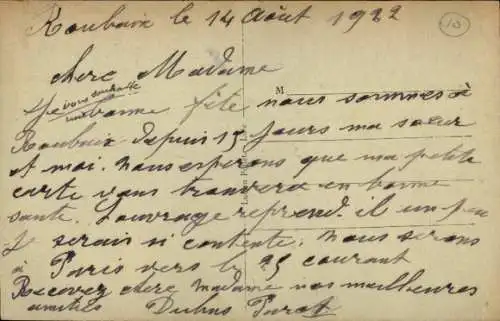 Roubaix le 14 Août 1922
10
chere Madame
je vous souhaite
une bonne fête nous sommes à
M
Roubaix depuis 15 jours ma sœur
et moi. nous esperons que ma petite
carte vous trouvera en bonne
santé. L'ouvrage reprend. il un peu
Je serais si contente. nous serons
à Paris vers le 25 courant
Recevez chere madame nos meilleures
amitiés Dubus